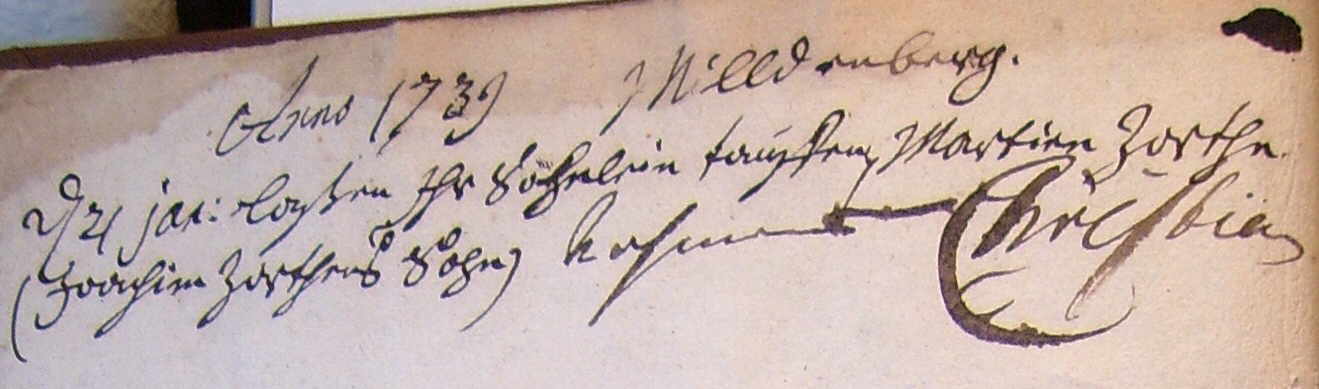 Anno 1739 Milldenberg.
D 24 jan: laßen Ihr Söhnlein tauffen, Martien Zorthe
(Joachim Zorthens Sohn) Nahmens Christian